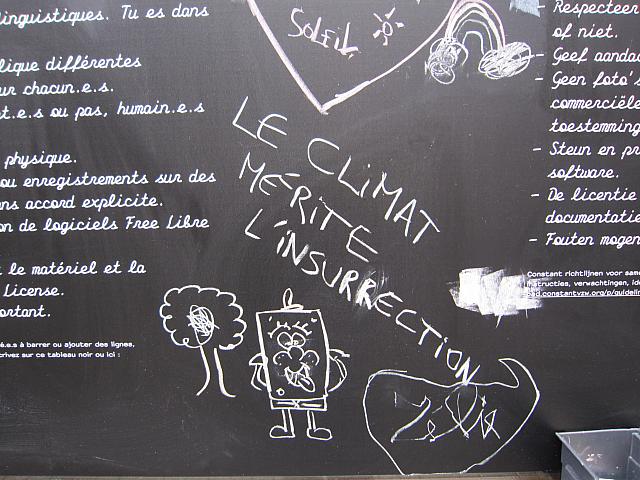 linguistiques. Tu es dans
lique différentes
ur chacun.e.s.
t.e.s ou pas, humain.e.s
physique.
ou enregistrements sur des
ns accord explicite.
on de logiciels Free Libre
t le matériel et la
License.
ortant.
é.e.s à barrer ou ajouter des lignes,
crivez sur ce tableau noir ou ici :
SOLEIL
LE CLIMAT
MÉRITE
L'INSURRECTION
- Respecteer
of niet.
- Geef aandac
- Geen foto's
commerciële
toestemming
- Steun en pr
software.
- De licentie
documentatie
- Fouten mogen
Constant richtlijnen voor same
instructies, verwachtingen, ide
pad.constantvzw.org/p/guidelin